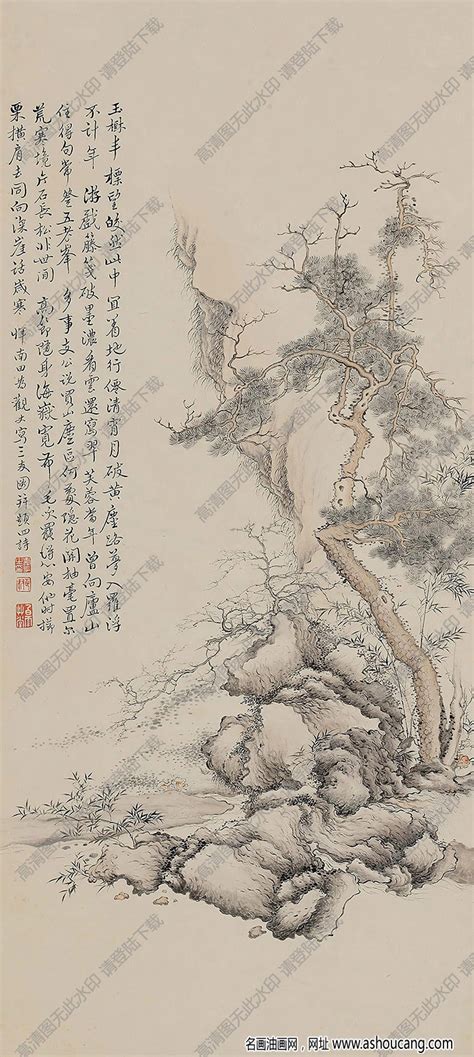 玉樹丰標望皎然此中宜著地行僊清宵月破黃塵路夢入羅浮
不計年 游戲藤箋破墨濃看雲還寫翠芙蓉當年曾向廬山
住得句常參五老峯 多事支公說買山塵區何處隱花開抽毫置尔
荒寒境片石長松非世間 高節隨身海嶽寬布毛吹罷得心安他時榔
栗橫肩去同向深崖話歲寒 惲南田為觀大寫三友圖并題四詩
高清图无此水印 请登陆下载
名画油画网，网址 www.ashoucang.com